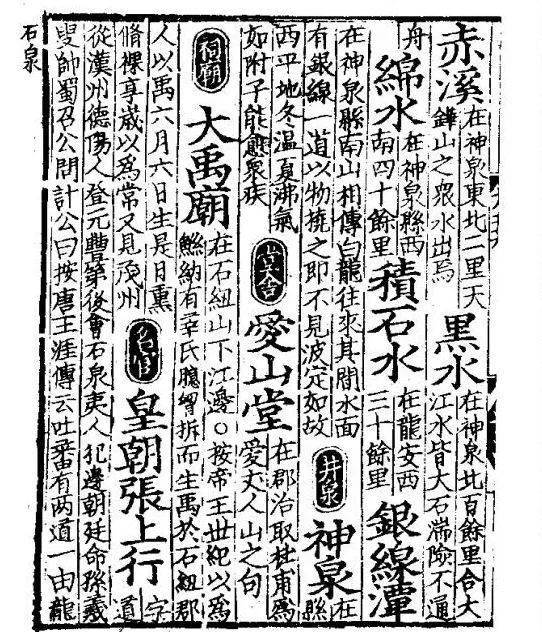 赤溪在神泉東北二里天鏵山之衆水出焉黑水在神泉北百餘里合大江水皆大石湍險不通
舟綿水在神泉縣西南四十餘里積石水在龍安西三十餘里銀線潭
在神泉縣南山相傳白龍往來其間水面有銀線一道以物撓之即不見波定如故井泉神泉在縣
西平地冬温夏沸氣如附子能愈衆疾堂舍愛山堂在郡治取杜甫爲愛丈人山之句
祠廟大禹廟在石紐山下江邊○按帝王世紀以爲鯀納有莘氏臆胷拆而生禹於石紐郡
人以禹六月六日生是日熏脩祼享歲以爲常又見茂州名宦皇朝張上行字道
從漢州德陽人登元豐第後會石泉夷人犯邊朝廷命孫羲叟帥蜀召公問計公曰按唐王涯傳云吐蕃有两道一由龍
石泉